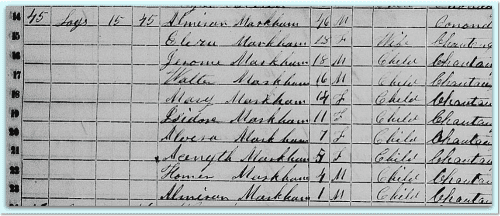 14 45 Logs 15 45 Almiran Markham 46 M
15 Markham F Wife Chautau
16 Jerome Markham 18 M Child Chautau
17 Walter Markham 16 M Child Chautau
18 Mary Markham 14 F Child Chautau
19 Isidore Markham 11 F Child Chautau
20 Alvera Markham 7 F Child Chautau
21 Markham F Child Chautau
22 Homer Markham 4 M Child Chautau
23 Almiran Markham 1 M Child Chautau